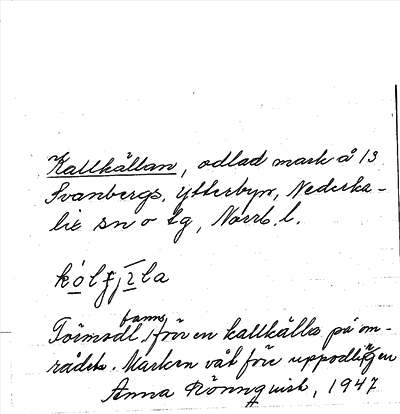 Kallkällan, odlad mark å 13
Svanbergs, Ytterbyn, Nederka-
lix sn o tg, Norrb. l.
kólfjı̄la
Förmodl fanns förr en kallkälla på om-
rådet. Marken våt före uppodlingen
Anna Rönnquist, 1947